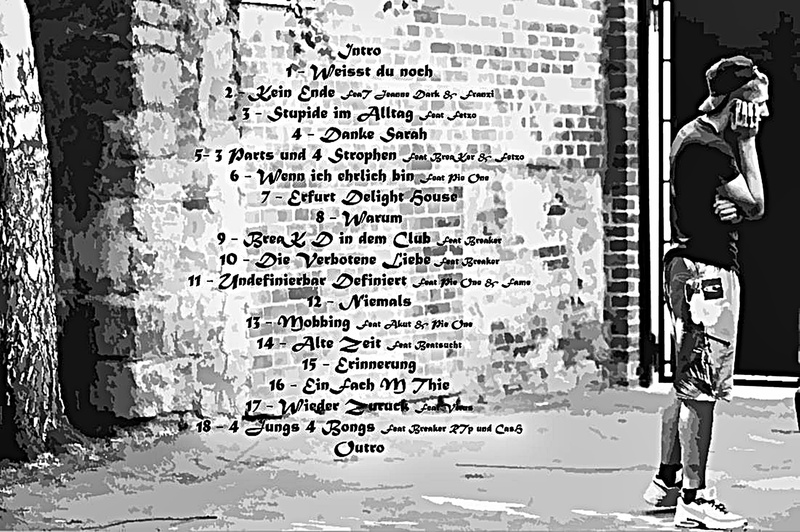 Intro
1 - Weisst du noch
2 - Kein Ende Fea7 Jeanne Dark & Franzi
3 - Stupide im Alltag Feat Fetzo
4 - Danke Sarah
5- 3 Parts und 4 Strophen Feat BreaKer & Fetzo
6 - Wenn ich ehrlich bin Feat Pie One
7 - Erfurt Delight House
8 - Warum
9 - BreaK D in dem Club Feat Breaker
10 - Die Verbotene Liebe Feat Breaker
11 - Undefinierbar Definiert Feat Pie One & Fame
12 - Niemals
13 - Mobbing Feat Akut & Pie One
14 - Alte Zeit Feat Beatsucht
15 - Erinnerung
16 - Ein Fach M Thie
17 - Wieder Zurück Feat
18 - 4 Jungs 4 Bongs Feat Breaker R7p und CasH
Outro